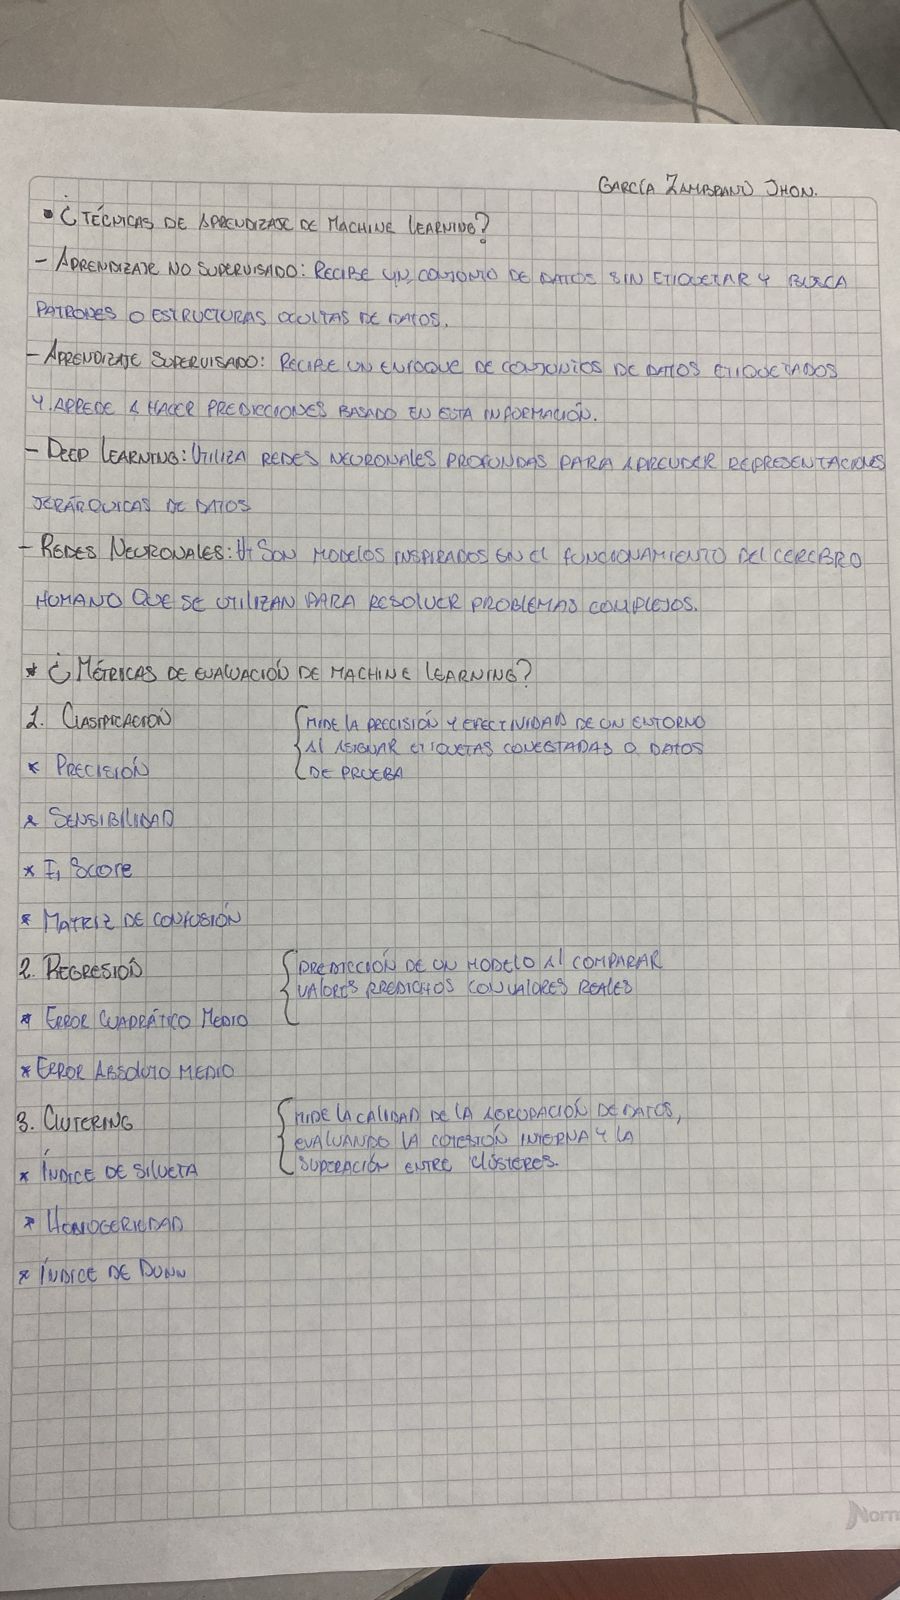 GARCÍA ZAMBRANO JHON.
• ¿TÉCNICAS DE APRENDIZAJE DE MACHINE LEARNING?
- APRENDIZAJE NO SUPERVISADO: RECIBE UN CONJUNTO DE DATOS SIN ETIQUETAR Y BUSCA
PATRONES O ESTRUCTURAS OCULTAS DE DATOS.
- APRENDIZAJE SUPERVISADO: RECIBE UN ENFOQUE DE CONJUNTOS DE DATOS ETIQUETADOS
Y APREDE A HACER PREDICCIONES BASADO EN ESTA INFORMACIÓN.
- DEEP LEARNING: UTILIZA REDES NEURONALES PROFUNDAS PARA APRENDER REPRESENTACIONES
JERÁRQUICAS DE DATOS
- REDES NEURONALES: SON MODELOS INSPIRADOS EN EL FUNCIONAMIENTO DEL CEREBRO
HUMANO QUE SE UTILIZAN PARA RESOLVER PROBLEMAS COMPLEJOS.
* ¿MÉTRICAS DE EVALUACIÓN DE MACHINE LEARNING?
1. CLASIFICACIÓN
MIDE LA PRECISIÓN Y EFECTIVIDAD DE UN ENTORNO
AL ASIGNAR ETIQUETAS CONESTADAS O DATOS
DE PRUEBA
* PRECISIÓN
* SENSIBILIDAD
* F1 Score
* MATRIZ DE CONFUSIÓN
2. REGRESIÓN
PREDICCIÓN DE UN MODELO AL COMPARAR
VALORES PREDICHOS CON VALORES REALES
* ERROR CUADRÁTICO MEDIO
* ERROR ABSOLUTO MEDIO
3. CLUTERING
MIDE LA CALIDAD DE LA AGRUPACIÓN DE DATOS,
EVALUANDO LA COHESIÓN INTERNA Y LA
SUPERACIÓN ENTRE CLÚSTERES.
* ÍNDICE DE SILUETA
* HOMOGERIEDAD
* ÍNDICE DE DUNN
Norm